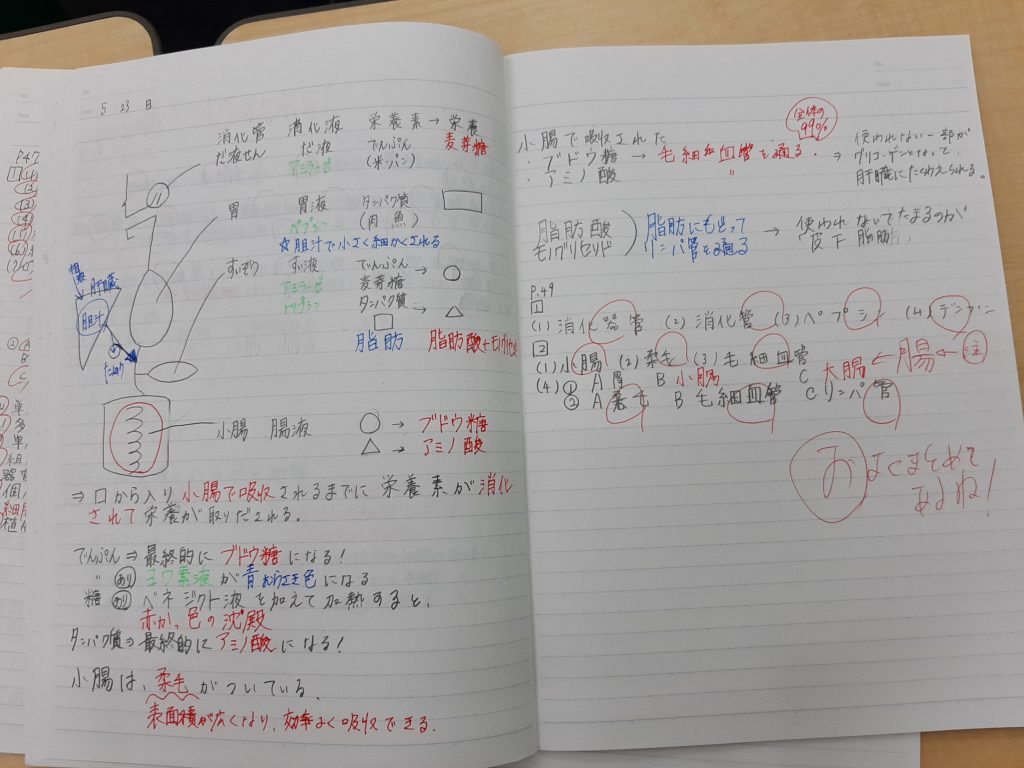 5 23 日
消化管 消化液 栄養素→栄養
だ液せん だ液 でんぷん 麦芽糖
アミラーゼ (米・パン)
胃 胃液 タンパク質
ペプシン (肉 魚)
☆胆汁で小さく細かくされる
すいぞう すい液 でんぷん → ○
アミラーゼ 麦芽糖
トリプシン タンパク質 → △
□
脂肪 脂肪酸+モノグリセリド
肝臓
胆汁
小腸 腸液 ○ → ブドウ糖
△ → アミノ酸
⇒ 口から入り小腸で吸収されるまでに栄養素が消化
されて栄養が取りだされる。
でんぷん⇒最終的にブドウ糖になる!
〃 あり ヨウ素液が青むらさき色になる
糖 あり ベネジクト液を加えて加熱すると、
赤かっ色の沈殿
タンパク質⇒最終的にアミノ酸になる!
小腸は、柔毛がついている。
表面積が広くなり、効率よく吸収できる。
小腸で吸収された
・ブドウ糖 → 毛細血管を通る。 ⇒ 使われない一部が
・アミノ酸 〃 グリコーゲンとなって、
肝臓にたくわえられる。
全体の
99%
脂肪酸 脂肪にもどって → 使われないでたまるのが
モノグリセリド リンパ管を通る 皮下脂肪。
P.49
1
(1)消化器管 (2)消化管 (3)ペプシン (4)
2
(1)小腸 (2)柔毛 (3)毛細血管
(4)① A 胃 B 小腸 C 大腸 ← 腸 ← 注
② A 柔毛 B 毛細血管 C リンパ管
よくまとめて
あるね!